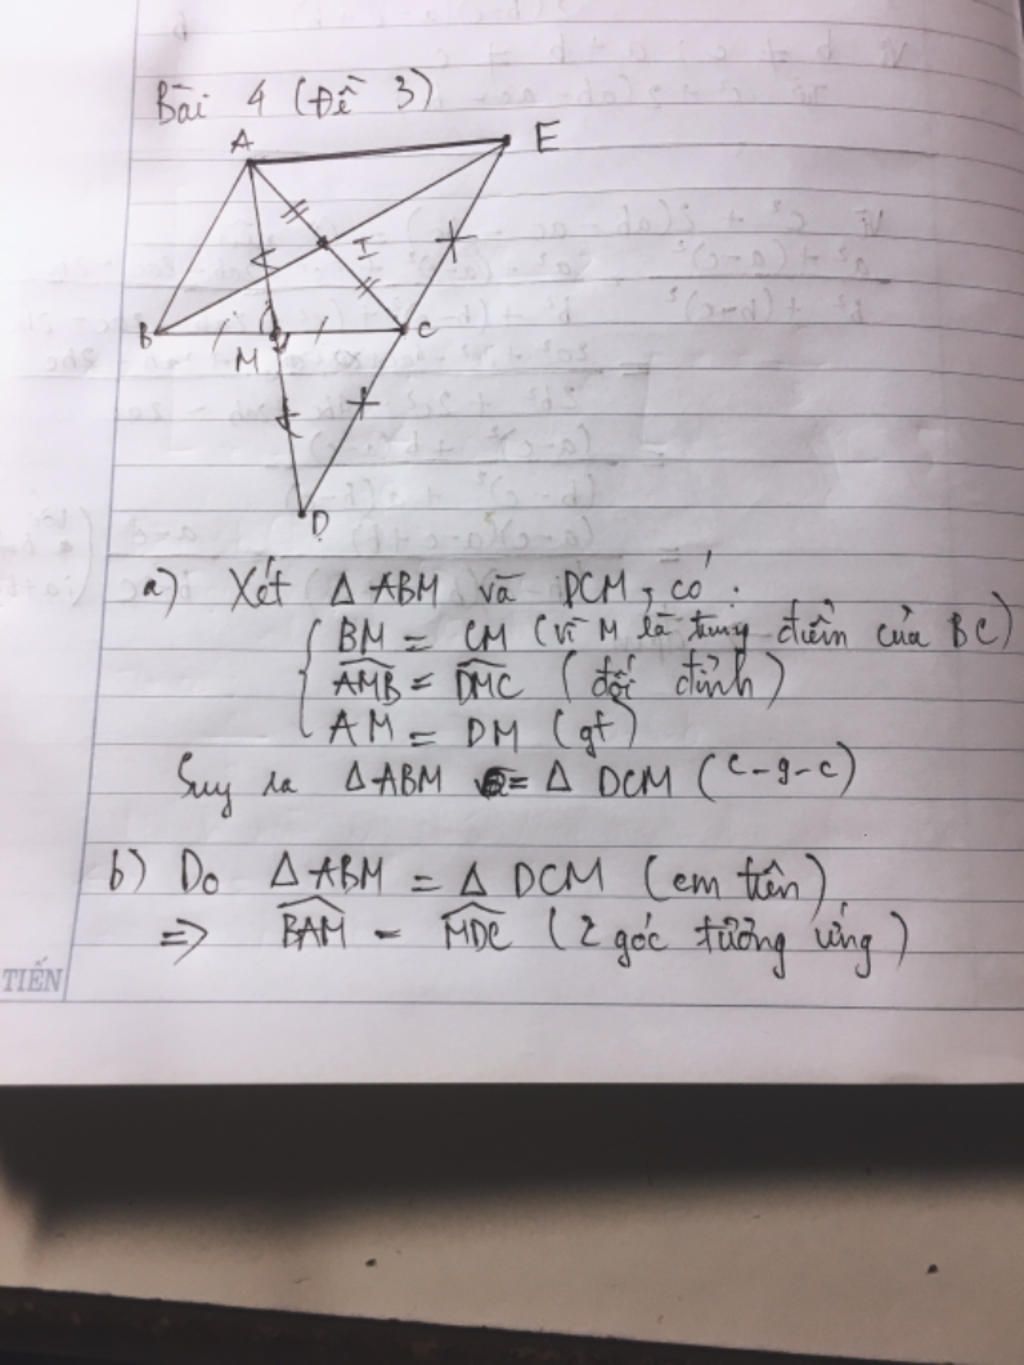 Bài 4 (Đề 3)
A
E
I
B
M
C
D
a) Xét Δ ABM và DCM, có:
BM = CM (vì M là trung điểm của BC)
AMB = DMC (đối đỉnh)
AM = DM (gt)
Suy ra Δ ABM = Δ DCM (c-g-c)
b) Do Δ ABM = Δ DCM (cm trên)
=> BAM = MDC (2 góc tương ứng)
TIẾN